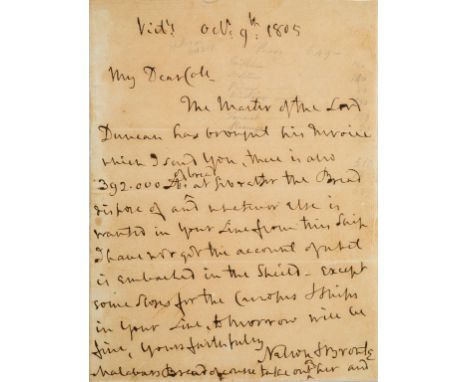 Vict^y. Oct^r. 9^th. 1805
My Dear Col.
The Master of the Lord
Duncan has brought his Invoice
which I send You, there is also
of bread
392.000 lb. at Gibralter the Bread
dispose of and whatever else is
wanted in Your Line from this Ship
I have not got the account of what
is embarked in the Sheild - Except
some Slops for the Ships
in Your Line, tomorrow will be
fine, Yours faithfully
Nelson & Bronte
Malabars Bread of course take out her and